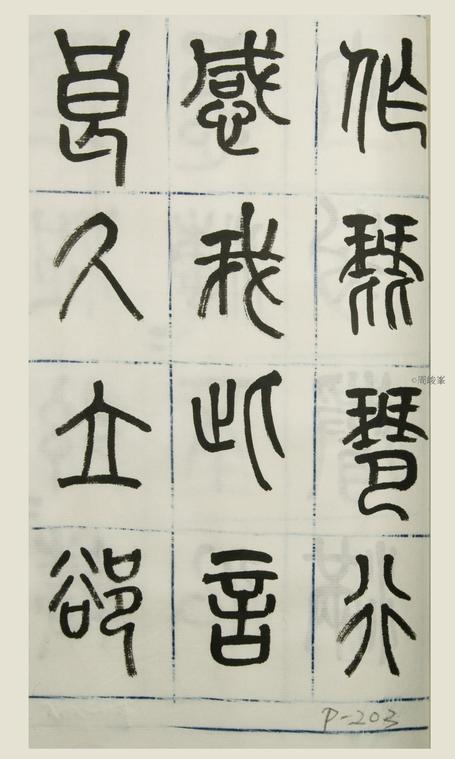 作琵琶行
感我此言
良久立卻
©周峻峯
P-203